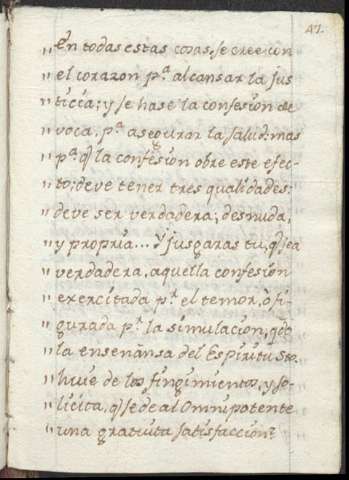 47.
" En todas estas cosas, se cree con
" el corazon p.ª alcansar la jus
" ticia; y se hase la confesion de
" voca, p.ª asegurar la salud: mas
" p.ª q̃ la confesion obre este efec-
" to, deve tener tres qualidades:
" deve ser verdadera, desnuda,
" y propria... Y jusgaras tu, q̃ sea
" verdadera, aquella confesion
" exercitada p.r el temor, o fi-
" gurada p.r la simulacion, q.do
" la enseñansa del Espiritu S.to
" huie de los fingimientos, y so-
" licita, q̃ se de al Omnipotente
" una gratuita satisfaccion?